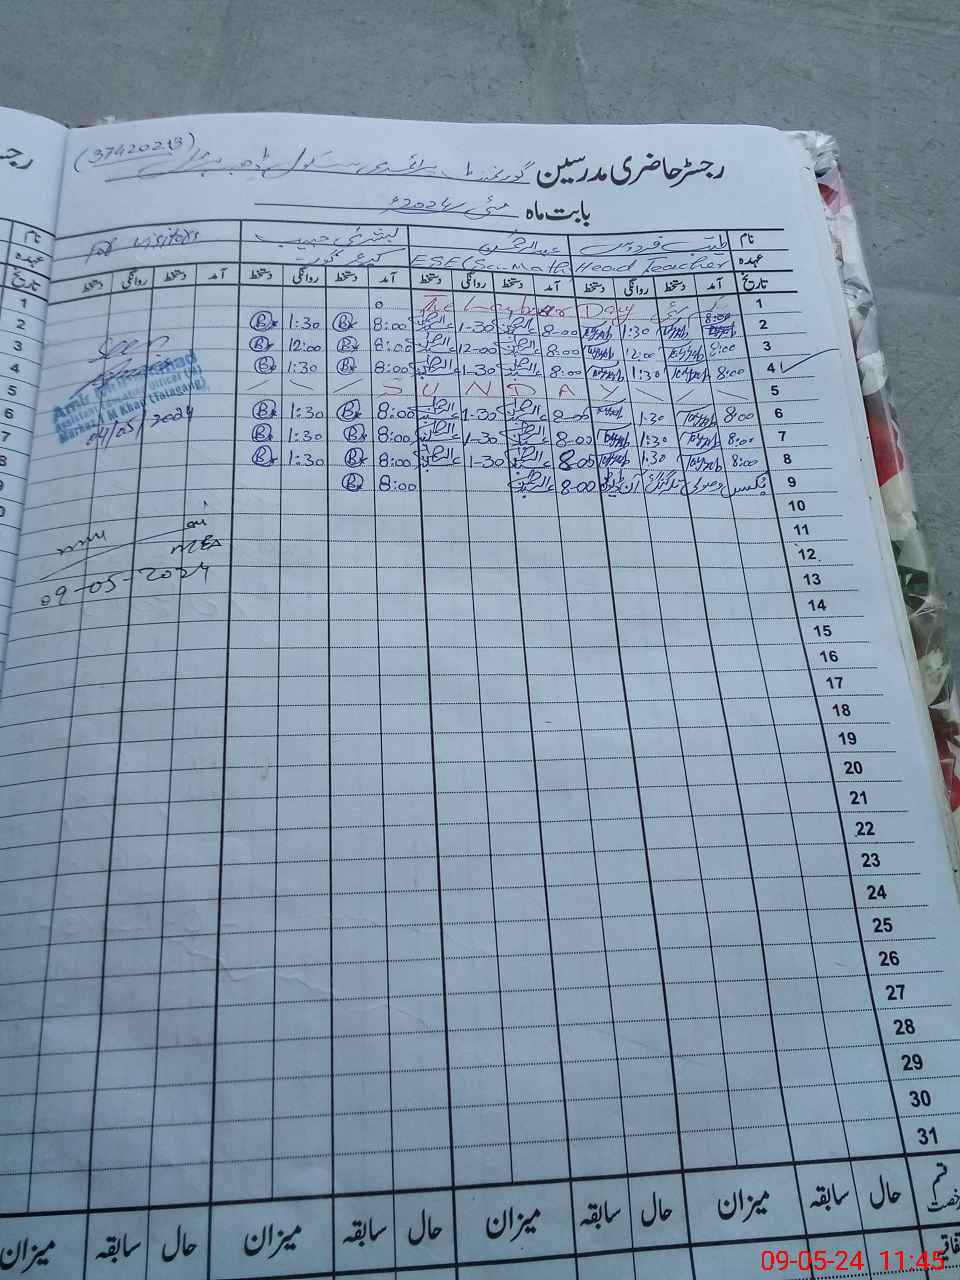 (37420213)
رجسٹر حاضری مدرسین گورنمنٹ پرائمری سکول
بابت ماہ مئی 2024ء
نام طیب فردوس عبدالرحمن بشریٰ حبیب For Visitors
عہدہ Head Teacher ESE(Sci-Math) کیئر گور
تاریخ آمد دستخط روانگی دستخط آمد دستخط روانگی دستخط آمد دستخط روانگی دستخط آمد دستخط روانگی دستخط
1 یکم مئی The Labour Day
2 8:00 Tayyab 1:30 Tayyab 8-00 عبدالرحمن 1-30 عبدالرحمن 8:00 B 1:30 B
3 8:00 Tayyab 12:00 Tayyab 8:00 عبدالرحمن 12-00 عبدالرحمن 8:00 B 12:00 B
4 8:00 Tayyab 1:30 Tayyab 8:00 عبدالرحمن 1-30 عبدالرحمن 8:00 B 1:30 B Seen
5 SUNDAY
6 8:00 Tayyab 1:30 Tayyab 8-00 عبدالرحمن 1-30 عبدالرحمن 8:00 B 1:30 B
7 8:00 Tayyab 1:30 Tayyab 8-00 عبدالرحمن 1-30 عبدالرحمن 8:00 B 1:30 B
8 8:00 Tayyab 1:30 Tayyab 8-05 عبدالرحمن 1-30 عبدالرحمن 8:00 B 1:30 B
9 بکس وصولی تلہ گنگ آن ڈیوٹی 8-00 عبدالرحمن 8:00 B
Markaz M Khan (Talagang)
04/05/2024
10
11
12
MEA
09-05-2024
13
14
15
16
17
18
19
20
21
22
23
24
25
26
27
28
29
30
31
قسم رخصت حال سابقہ میزان حال سابقہ میزان حال سابقہ میزان حال سابقہ میزان
09-05-24 11:45